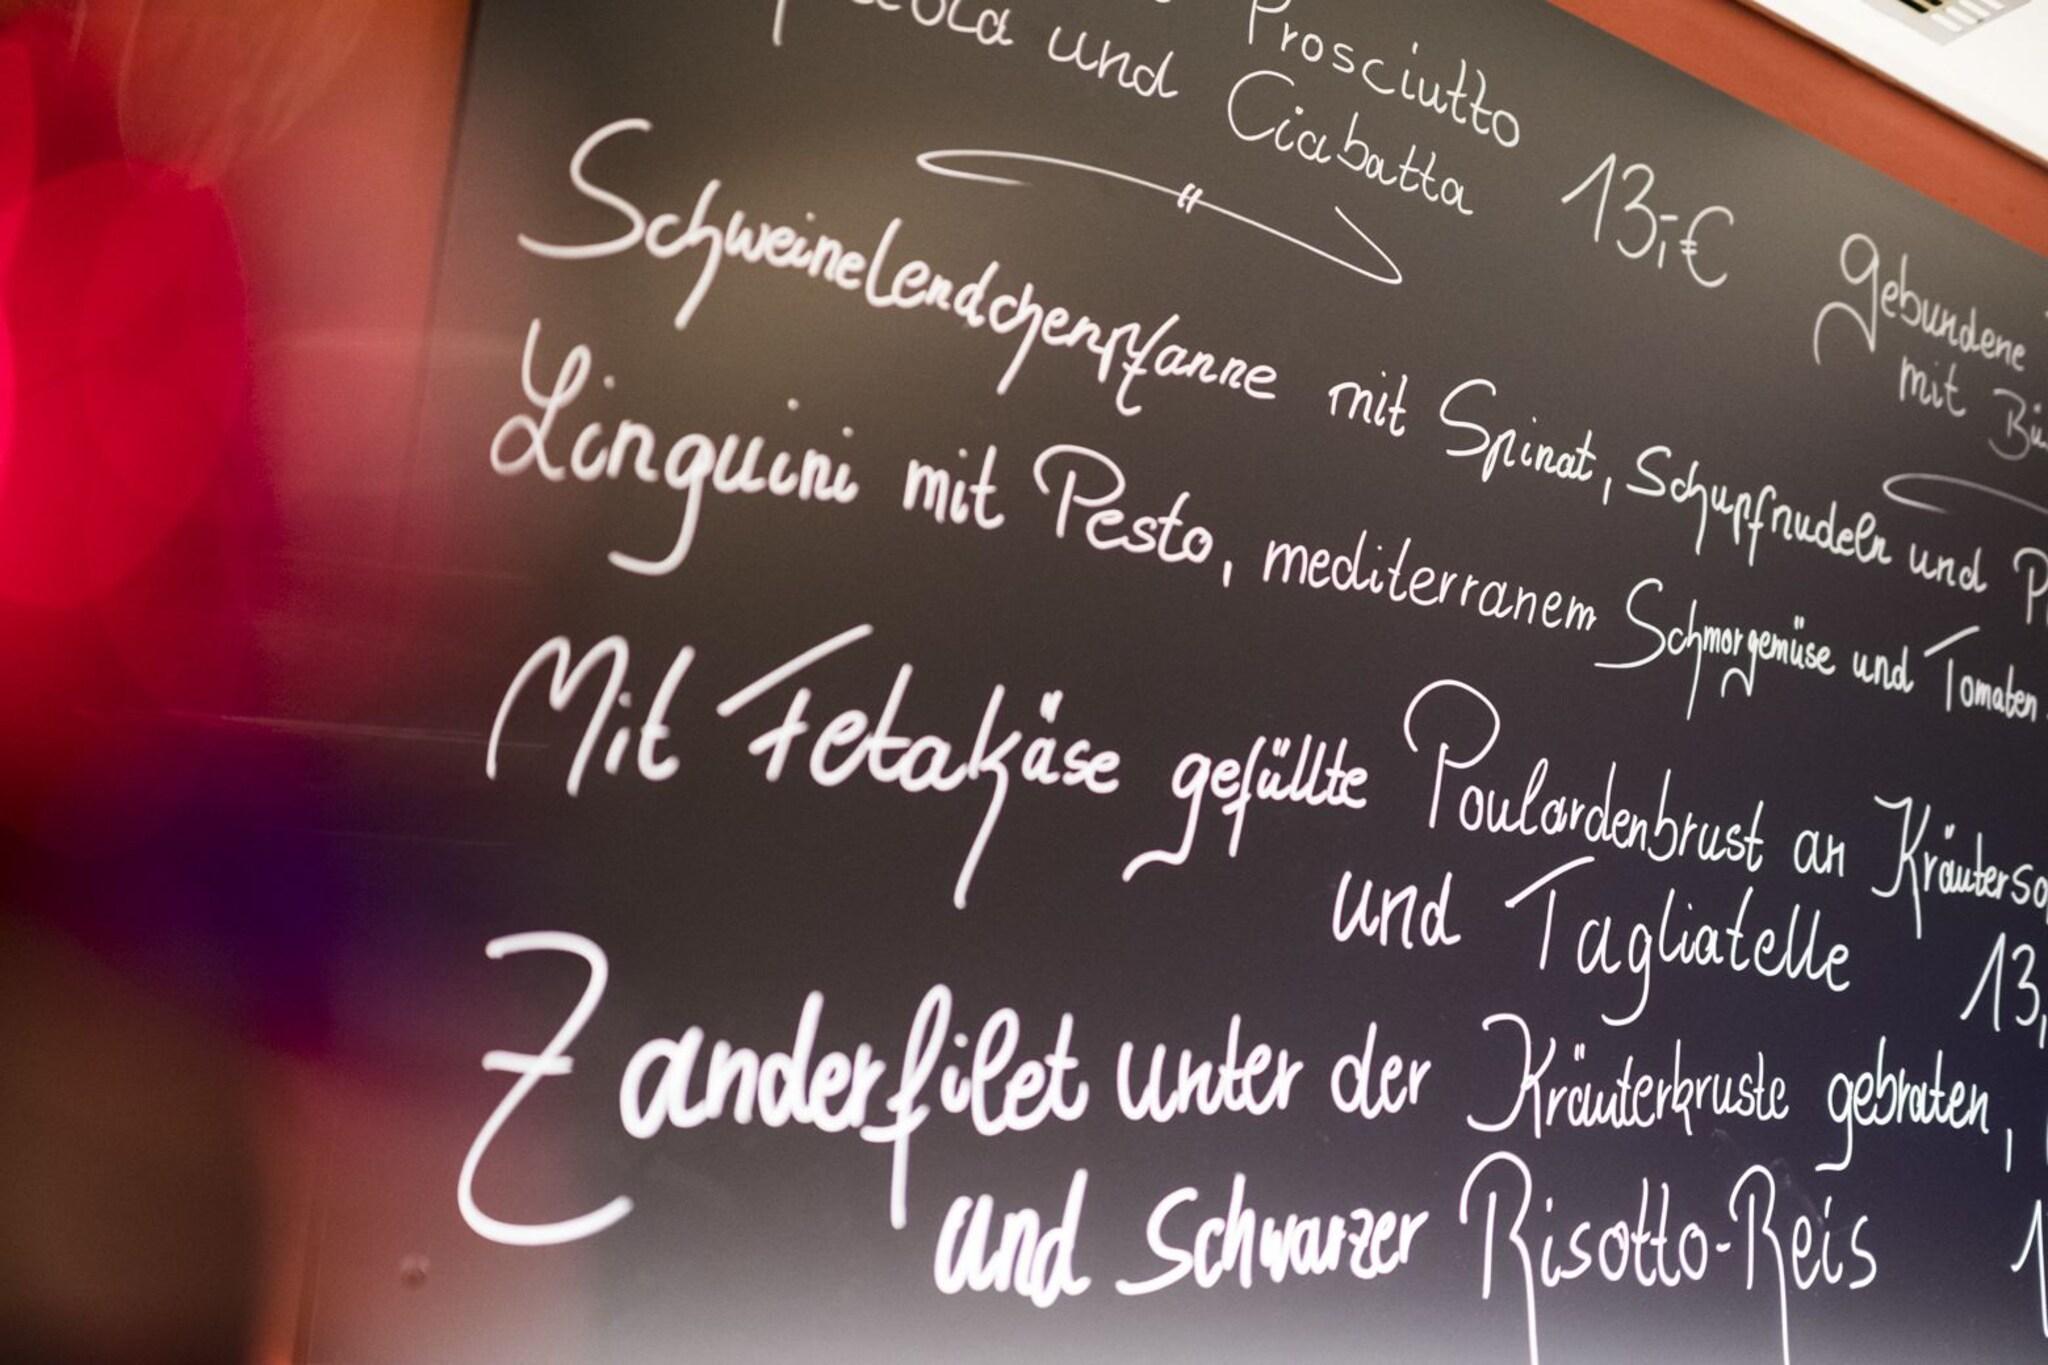 Prosciutto
und Ciabatta 13,-€
Gebundene
mit
Schweinelendchenpfanne mit Spinat, Schupfnudeln und
Linguini mit Pesto, mediterranem Schmorgemüse und Tomaten
Mit Fetakäse gefüllte Poulardenbrust an
und Tagliatelle 13,
Zanderfilet unter der Kräuterkruste gebraten,
und Schwarzer Risotto-Reis